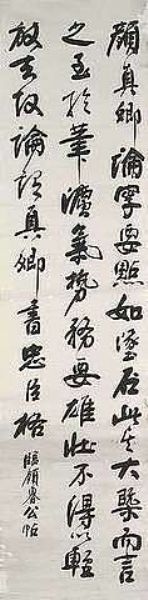 顏真卿論字要點如墜石此其大槩而言
之至於筆瀆氣勢務要雄壯不得以輕
故古改論謂真卿書忠臣格
臨顏魯公帖